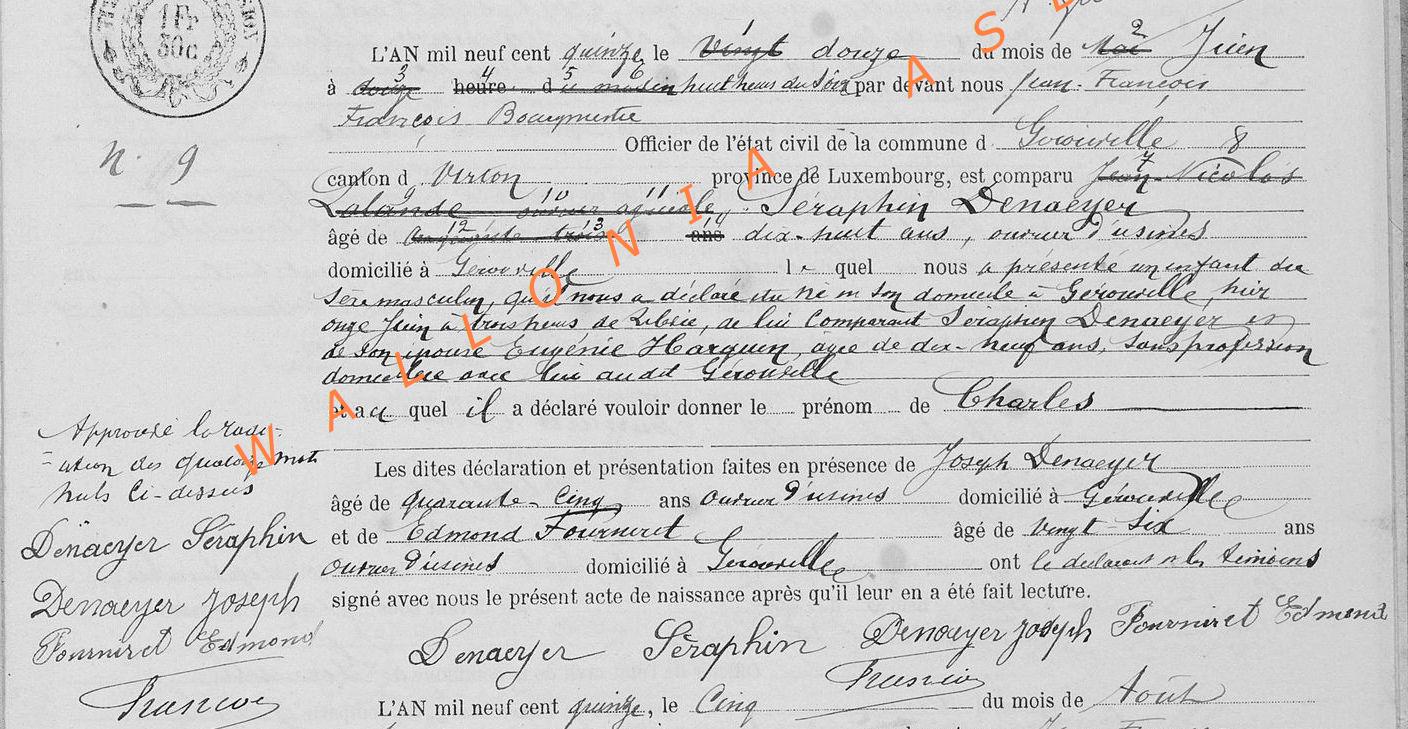 1 Fr
50c
L'AN mil neuf cent quinze le Vingt douze du mois de Mai Juin
à douze heure d u matin huit heures du soir par devant nous Jean-François
François Bourgmestre
Officier de l'état civil de la commune d Gérouville 8
N. 9
canton d Virton province de Luxembourg, est comparu Jean-Nicolas
Lalande ouvrier agricole, Séraphin Denaeyer
âgé de cinquante trois ans dix-huit ans, ouvrier d'usines
domicilié à Gérouville l e quel nous a présenté un enfant du
sexe masculin, qu'il nous a déclaré être né en son domicile à Gérouville, hier
onze Juin à trois heures de relevée, de lui Comparant Séraphin Denaeyer et
de son épouse Eugénie Harquin, agée de dix-neuf ans, sans profession
domiciliée avec lui audit Gérouville
et a u quel il a déclaré vouloir donner le prénom de Charles
Approuvé la radi-
-ation des quatorze mots
nuls ci-dessus
Les dites déclaration et présentation faites en présence de Joseph Denaeyer
âgé de quarante-cinq ans ouvrier d'usines domicilié à Gérouville
et de Edmond Fourniret âgé de vingt-six ans
ouvrier d'usines domicilié à Gérouville ont le déclarant et les témoins
signé avec nous le présent acte de naissance après qu'il leur en a été fait lecture.
Denaeyer Séraphin
Denaeyer Joseph
Fourniret Edmond
François
Denaeyer Séraphin Denaeyer Joseph Fourniret Edmond
François
L'AN mil neuf cent quinze, le Cinq du mois de Août
WALLONIA AS